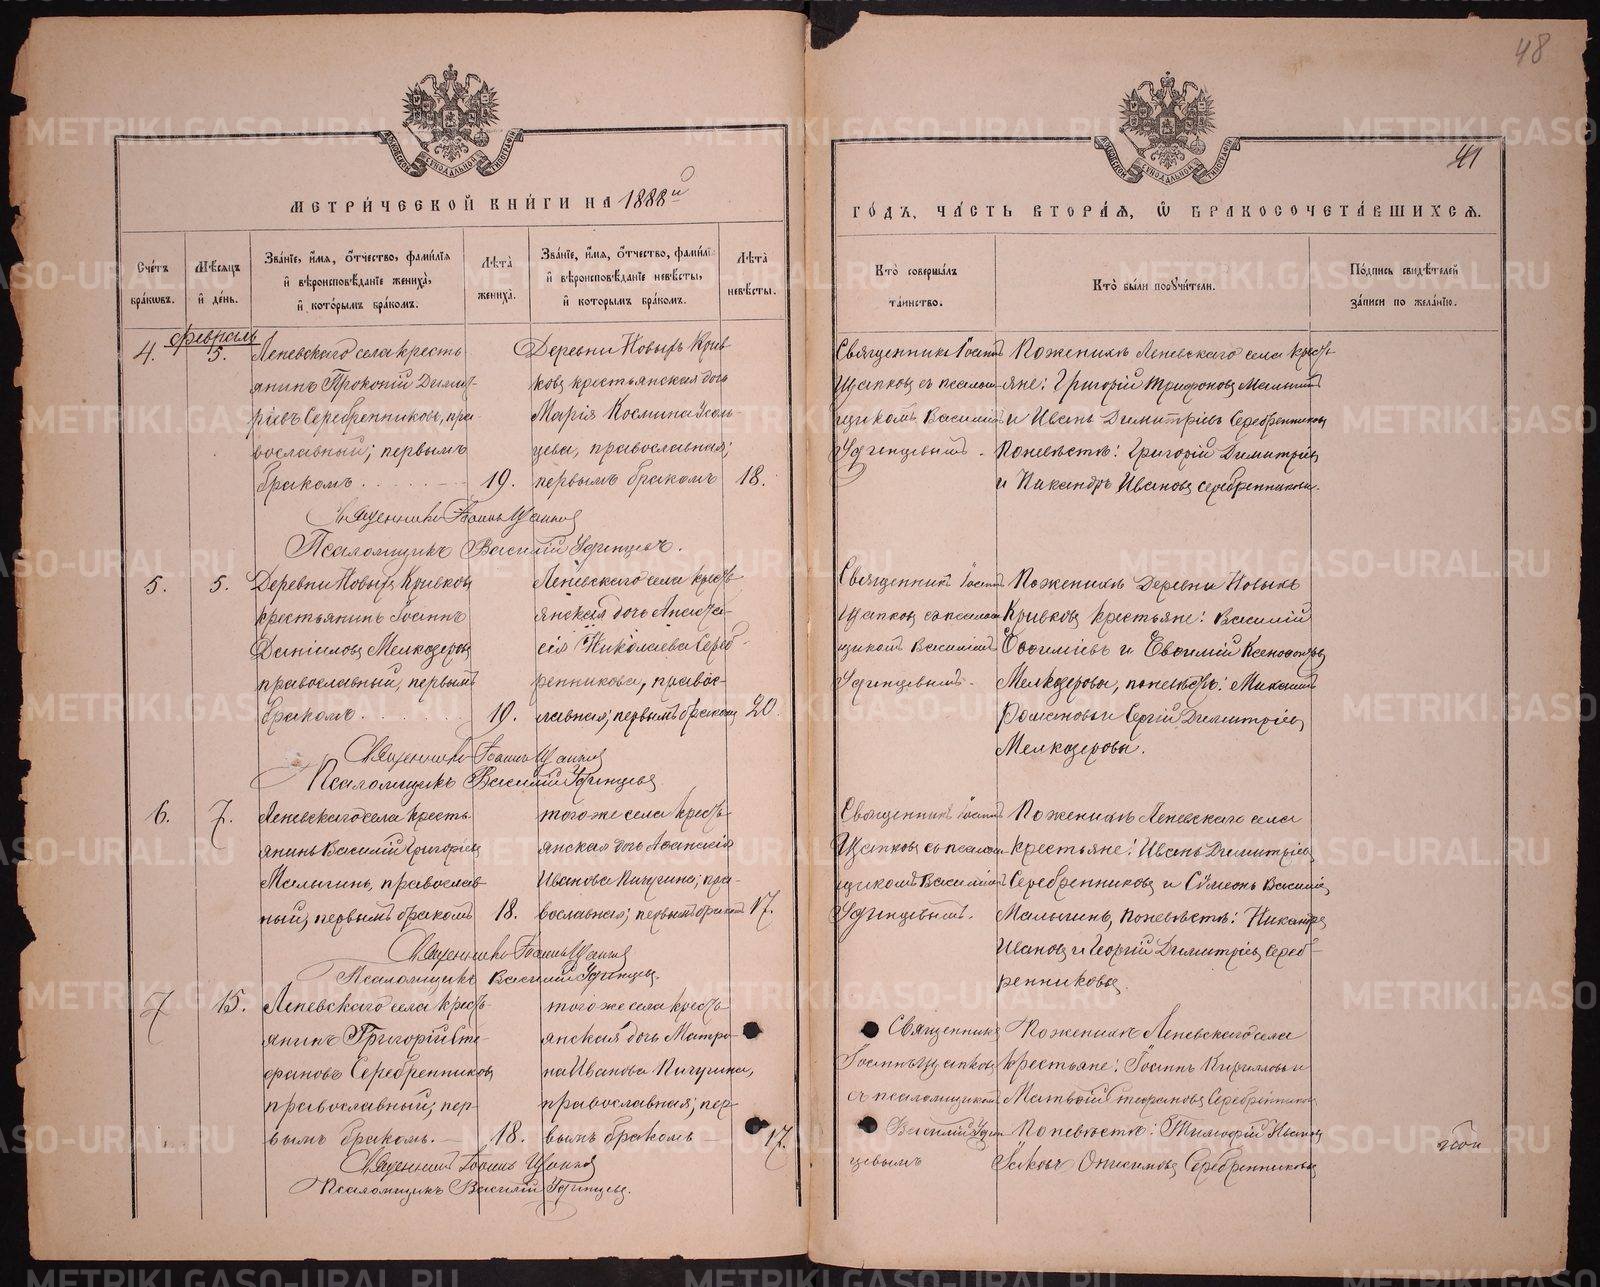 48
41
МОСКОВСКОЙ СѴНОДАЛЬНОЙ ТИПОГРАФІИ
МЕТРИ́ЧЕСКОЙ КНИ́ГИ НА 1888й
ГО́ДЪ, ЧА́СТЬ ВТОРА́Я, Ѡ҆ БРАКОСОЧЕТА́ВШИХСЯ.
Сче́тъ бра́кѡвъ.
Мѣ́сяцъ и҆ де́нь.
Зва́нїе, и҆́мя, ѻ҆́тчество, фами́лїя и҆ вѣроисповѣ́данїе жениха̀, и҆ кото́рымъ бра́комъ.
Лѣ́та жениха̀.
Зва́нїе, и҆́мя, ѻ҆́тчество, фами́лїя и҆ вѣроисповѣ́данїе невѣ́сты, и҆ которымъ бра́комъ.
Лѣ́та невѣ́сты.
Кто̀ соверша́лъ та́инство.
Кто̀ бы́ли порꙋчи́тели.
По́дпись свидѣ́телей за́писи по жела́нїю.
февраль
4.
5.
Леневскаго села кресть-
янинъ Прокопій Димит-
ріевъ Серебренниковъ, пра-
вославный; первымъ
бракомъ
19.
Деревни Новыхъ Крив-
ковъ крестьянская дочь
Марія Космина Усоль-
цева, православная;
первымъ бракомъ
18.
Священникъ Іоаннъ
Щапковъ съ псалом-
щикомъ Василіемъ
Уфинцевымъ.
По женихѣ Леневскаго села кресть-
яне: Григорій Трифоновъ Малыгинъ
и Иванъ Димитріевъ Серебренниковъ
По невѣстѣ: Григорій Димитріевъ
и Никандръ Ивановъ Серебренниковы.
Священникъ Іоаннъ Щапковъ
Псаломщикъ Василій Уфинцевъ.
5.
5.
Деревни Новыхъ Кривковъ
крестьянинъ Іоаннъ
Даніиловъ Мелкозеровъ
православный, первымъ
бракомъ
19.
Леневскаго села кресть-
янская дочь Анаста-
сія Николаева Сереб-
ренникова, правос-
лавная; первымъ бракомъ
20.
Священникъ Іоаннъ
Щапковъ съ псалом-
щикомъ Василіемъ
Уфинцевымъ.
По женихѣ Деревни Новыхъ
Кривковъ крестьяне: Василій
и Евѳимій Ксенофонтовъ
Мелкозеровы, по невѣстѣ: Михаилъ
Романовъ и Сергій Димитріевъ
Мелкозеровы.
Священникъ Іоаннъ Щапковъ
Псаломщикъ Василій Уфинцевъ
6.
7.
Леневскаго села кресть-
янинъ Василій Григорьевъ
Малыгинъ, православ-
ный; первымъ бракомъ
18.
того же села кресть-
янская дочь Аѳанасія
Иванова Пичугина; пра-
вославная; первымъ бракомъ
17.
Священникъ Іоаннъ
Щапковъ съ псалом-
щикомъ Василіемъ
Уфинцевымъ.
По женихѣ Леневскаго села
крестьяне: Иванъ Димитріевъ
Серебренниковъ и Сѵмеонъ Василіевъ
Малыгинъ, по невѣстѣ: Никандръ
Ивановъ и Георгій Димитріевъ Сереб-
ренниковы.
Священникъ Іоаннъ Щапковъ
Псаломщикъ Василій Уфинцевъ.
7
15.
Леневскаго села кресть-
янинъ Григорій Сте-
фановъ Серебренниковъ
православный; пер-
вымъ бракомъ.
18.
того же села кресть-
янская дочь Матро-
на Иванова Пичугина,
православная; пер-
вымъ бракомъ
17.
Священникъ
Іоаннъ Щапковъ
съ псаломщикомъ
Василій Уфин-
цевымъ
По женихѣ Леневскаго села
крестьяне: Іоаннъ Кирилловъ и
Матвѣй Стефановъ Серебренниковы
По невѣстѣ: Тимофей Ивановъ
Яковъ Онисимовъ Серебренниковы
Священникъ Іоаннъ Щапковъ
Псаломщикъ Василій Уфинцевъ.
METRIKI.GASO-URAL.RU